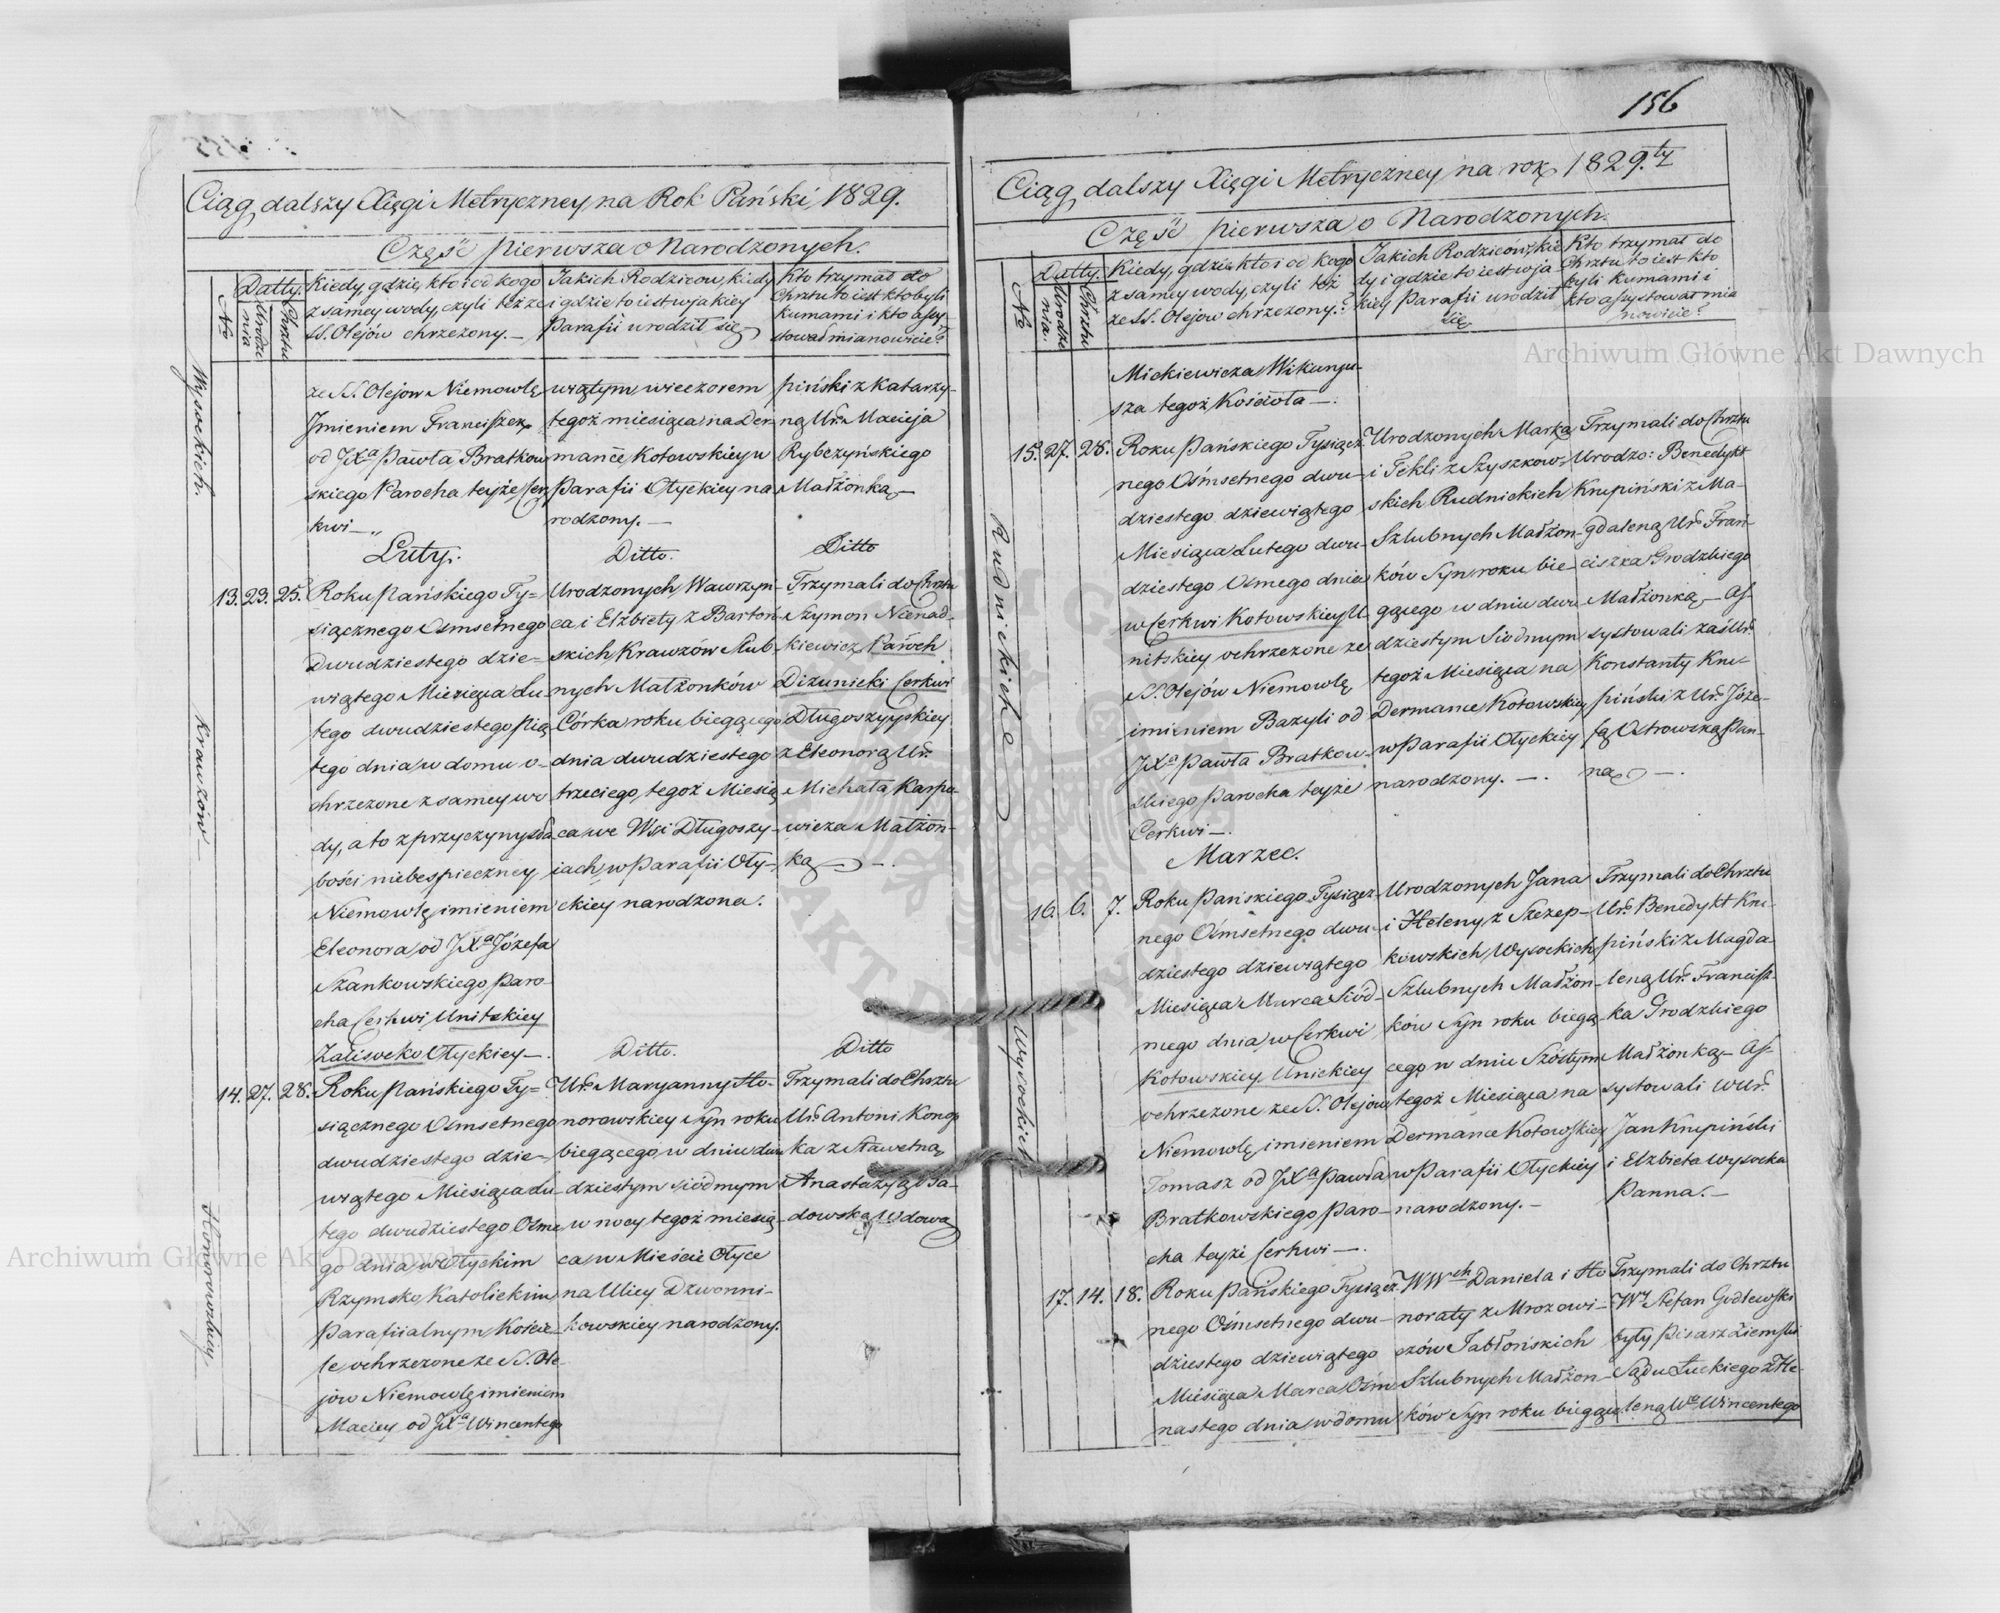 156
Ciąg dalszy Xięgi Metryczney na Rok Pański 1829.
Część pierwsza o Narodzonych.
No
Datty.
Urodze
nia
Chrztu
Kiedy, gdzie, kto i od kogo
z samey wody, czyli też ze
SS. Olejów chrzczony.—
Jakich Rodziców, kiedy
i gdzie to iest w jakiey
Parafii urodził się
Kto trzymał do
Chrztu to iest kto byli
kumami i kto assy-
stował mianowicie?
Wysockich.
ze SS. Olejow Niemowlę
Imieniem Franciszek
od JXa Pawła Bratkow
skiego Parocha teyże Cer
kwi—„
wiątym wieczorem
tegoż miesiąca na Der-
mańce Kotowskiey w
Parafii Ołyckiey na
rodzony.—
piński z Katarzy-
ną Ur. Macieja
Rybczyńskiego
Małżonką—
Luty.
Ditto.
Ditto
Krawzów—
13. 23. 25.
Roku Pańskiego Ty=
siącznego Osmsetnego
Dwudziestego dzie-
wiątego Miesiąca Lu-
tego dwudziestego pią
tego dnia w domu o-
chrzczone z samey wo
dy, a to z przyczyny sła
bości niebespieczney
Niemowlę imieniem
Eleonora od JXa Józefa
Szankowskiego Paro-
cha Cerkwi Unitskiey
Zalisocko Ołyckiey—.
Urodzonych Wawrzyń-
ca i Elżbiety z Bartoń-
skich Krawzów Slub-
nych Małżonków
Córka roku biegącego
dnia dwudziestego
trzeciego, tegoż Miesią
ca we Wsi Długoszy-
iach, w Parafii Oły-
ckiey narodzona.
Trzymali do Chrztu
Szymon Nienad-
kiewicz, Paroch
Dizunicki Cerkwi
Długoszyyskiey
z Eleonorą Ur.
Michała Karpo-
wicza Małżon-
ką—.
Ditto.
Ditto
Honorowskiey
14. 27. 28.
Roku Pańskiego Ty=
siącznego Osmsetnego
dwudziestego dzie-
wiątego Miesiąca Lu-
tego dwudziestego Osme
go dnia w Ołyckim
Rzymsko Katolickim
Parafiialnym Koście-
le ochrzczone ze SS. Ole-
jów Niemowlę imieniem
Maciey od JXa Wincentego
Ur. Maryanny Ho-
norowskiey Syn roku
biegącego w dniu dwu
dziestym siódmym
w nocy tegoż miesią-
ca w Mieście Ołyce
na Ulicy Dzwonni-
kowskiey narodzony.
Trzymali do Chrztu
Ur. Antoni Konop
ka z Sławetną
Anastazyą Sa-
dowską Wdową
Ciąg dalszy Xięgi Metryczney na rok 1829.ty
Część pierwsza o Narodzonych.
No
Datty.
Urodze
nia.
Chrztu
Kiedy, gdzie kto i od kogo
z samey wody, czyli też
ze SS. Olejow chrzczony.?
Jakich Rodziców, kie
dy i gdzie to iest w ja
kiey Parafii urodził
się
Kto trzymał do
Chrztu to iest kto
byli kumami i
kto assystował mia
nowicie?
Mickiewicza Wikaryu-
sza tegoż Kościoła—.
Rudnickich
15. 27. 28.
Roku Pańskiego Tysiącz
nego Ośmsetnego dwu-
dziestego dziewiątego
Miesiąca Lutego dwu-
dziestego Osmego dnia
w Cerkwi Kotowskiey U-
nitskiey ochrzczone ze
SS. Olejów Niemowlę
imieniem Bazyli od
JXa Pawła Bratkow-
skiego Parocha teyże
Cerkwi—.
Urodzonych Marka
i Tekli z Szyszkow-
skich Rudnickich
Szlubnych Małżon-
ków Syn roku bie
gącego w dniu dwu
dziestym Siodmym
tegoż Miesiąca na
Dermance Kotowskiey
w Parafii Ołyckiey
narodzony.—.
Trzymali do Chrztu
Urodzo: Benedykt
Krupiński z Ma-
gdaleną Ur. Fran-
ciszka Grodzkiego
Małżonką—As-
systowali zaś Ur.
Konstanty Kru-
piński z Ur. Józe-
fą Ostrowską Pan-
ną—.
Marzec.
Wysockich
16. 6. 7.
Roku Pańskiego Tysiącz-
nego Ośmsetnego dwu-
dziestego dziewiątego
Miesiąca Marca Siód-
mego dnia w Cerkwi
Kotowskiey Unickiey
ochrzczone ze SS. Olejow
Niemowlę imieniem
Tomasz od JXa Pawła
Bratkowskiego Paro-
cha teyże Cerkwi—.
Urodzonych Jana
i Heleny z Szczep-
kowskich Wysockich
Szlubnych Małżon-
ków Syn roku biegą-
cego w dniu Szóstym
tegoż Miesiąca na
Dermance Kotowskiey
w Parafii Ołyckiey
narodzony.—
Trzymali do Chrztu
Ur. Benedykt Kru-
piński z Magda-
leną Ur. Francisz-
ka Grodzkiego
Małżonką—As-
systowali Ur.
Jan Krupiński
i Elżbieta Wysocka
Panna.—
17. 14. 18.
Roku Pańskiego Tysiącz
nego Ośmsetnego dwu-
dziestego dziewiątego
Miesiąca Marca Osm
nastego dnia w domu
WWch Daniela i Ho
noraty z Mrozowi-
czów Jabłońskich
Szlubnych Małżon-
ków Syn roku biegące
Trzymali do Chrztu
Wy Stefan Godlewski
były Pisarz Ziemski
Sądu Łuckiego z He-
leną Wa Wincentego
Archiwum Główne Akt Dawnych
Archiwum Główne Akt Dawnych